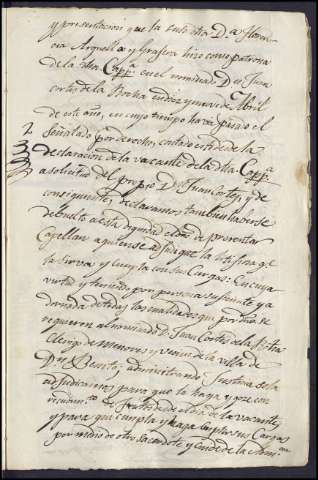 y presentacion que la susodha D.ª Floren
cia Arguella y Grafera hizo como patrona
de la dha Capp.ª en el nominado D.n Juan
Cortes de la Rocha en diez y nueve de Abril
de este año, en cuyo tiempo havia pasado el
señalado por derecho, contado este desde la
declaracion de la vacante de la dha Capp.ª
a solicitud del propio D.n Juan Cortes, y de
consiguiente, declaramos tambien haverse
debuelto a esta dignidad el dro de presentar
Capellan a quien se adjudique la
la sirva y cumpla con sus Cargas: En cuya
virtud y teniendo por persona suficiente y a
dornada de todas las qualidades que por dro se
requieren al nominado D. Juan Cortes de la
Clerigo de Menores y vecino de la villa de
D.n Benito; administrando Justicia se la
adjudicamos para que la haga y goze con
frutos desde el dia de la vacante,
y para que cumpla y haga cumplir sus Cargas
por medio de otro Sacerdote y